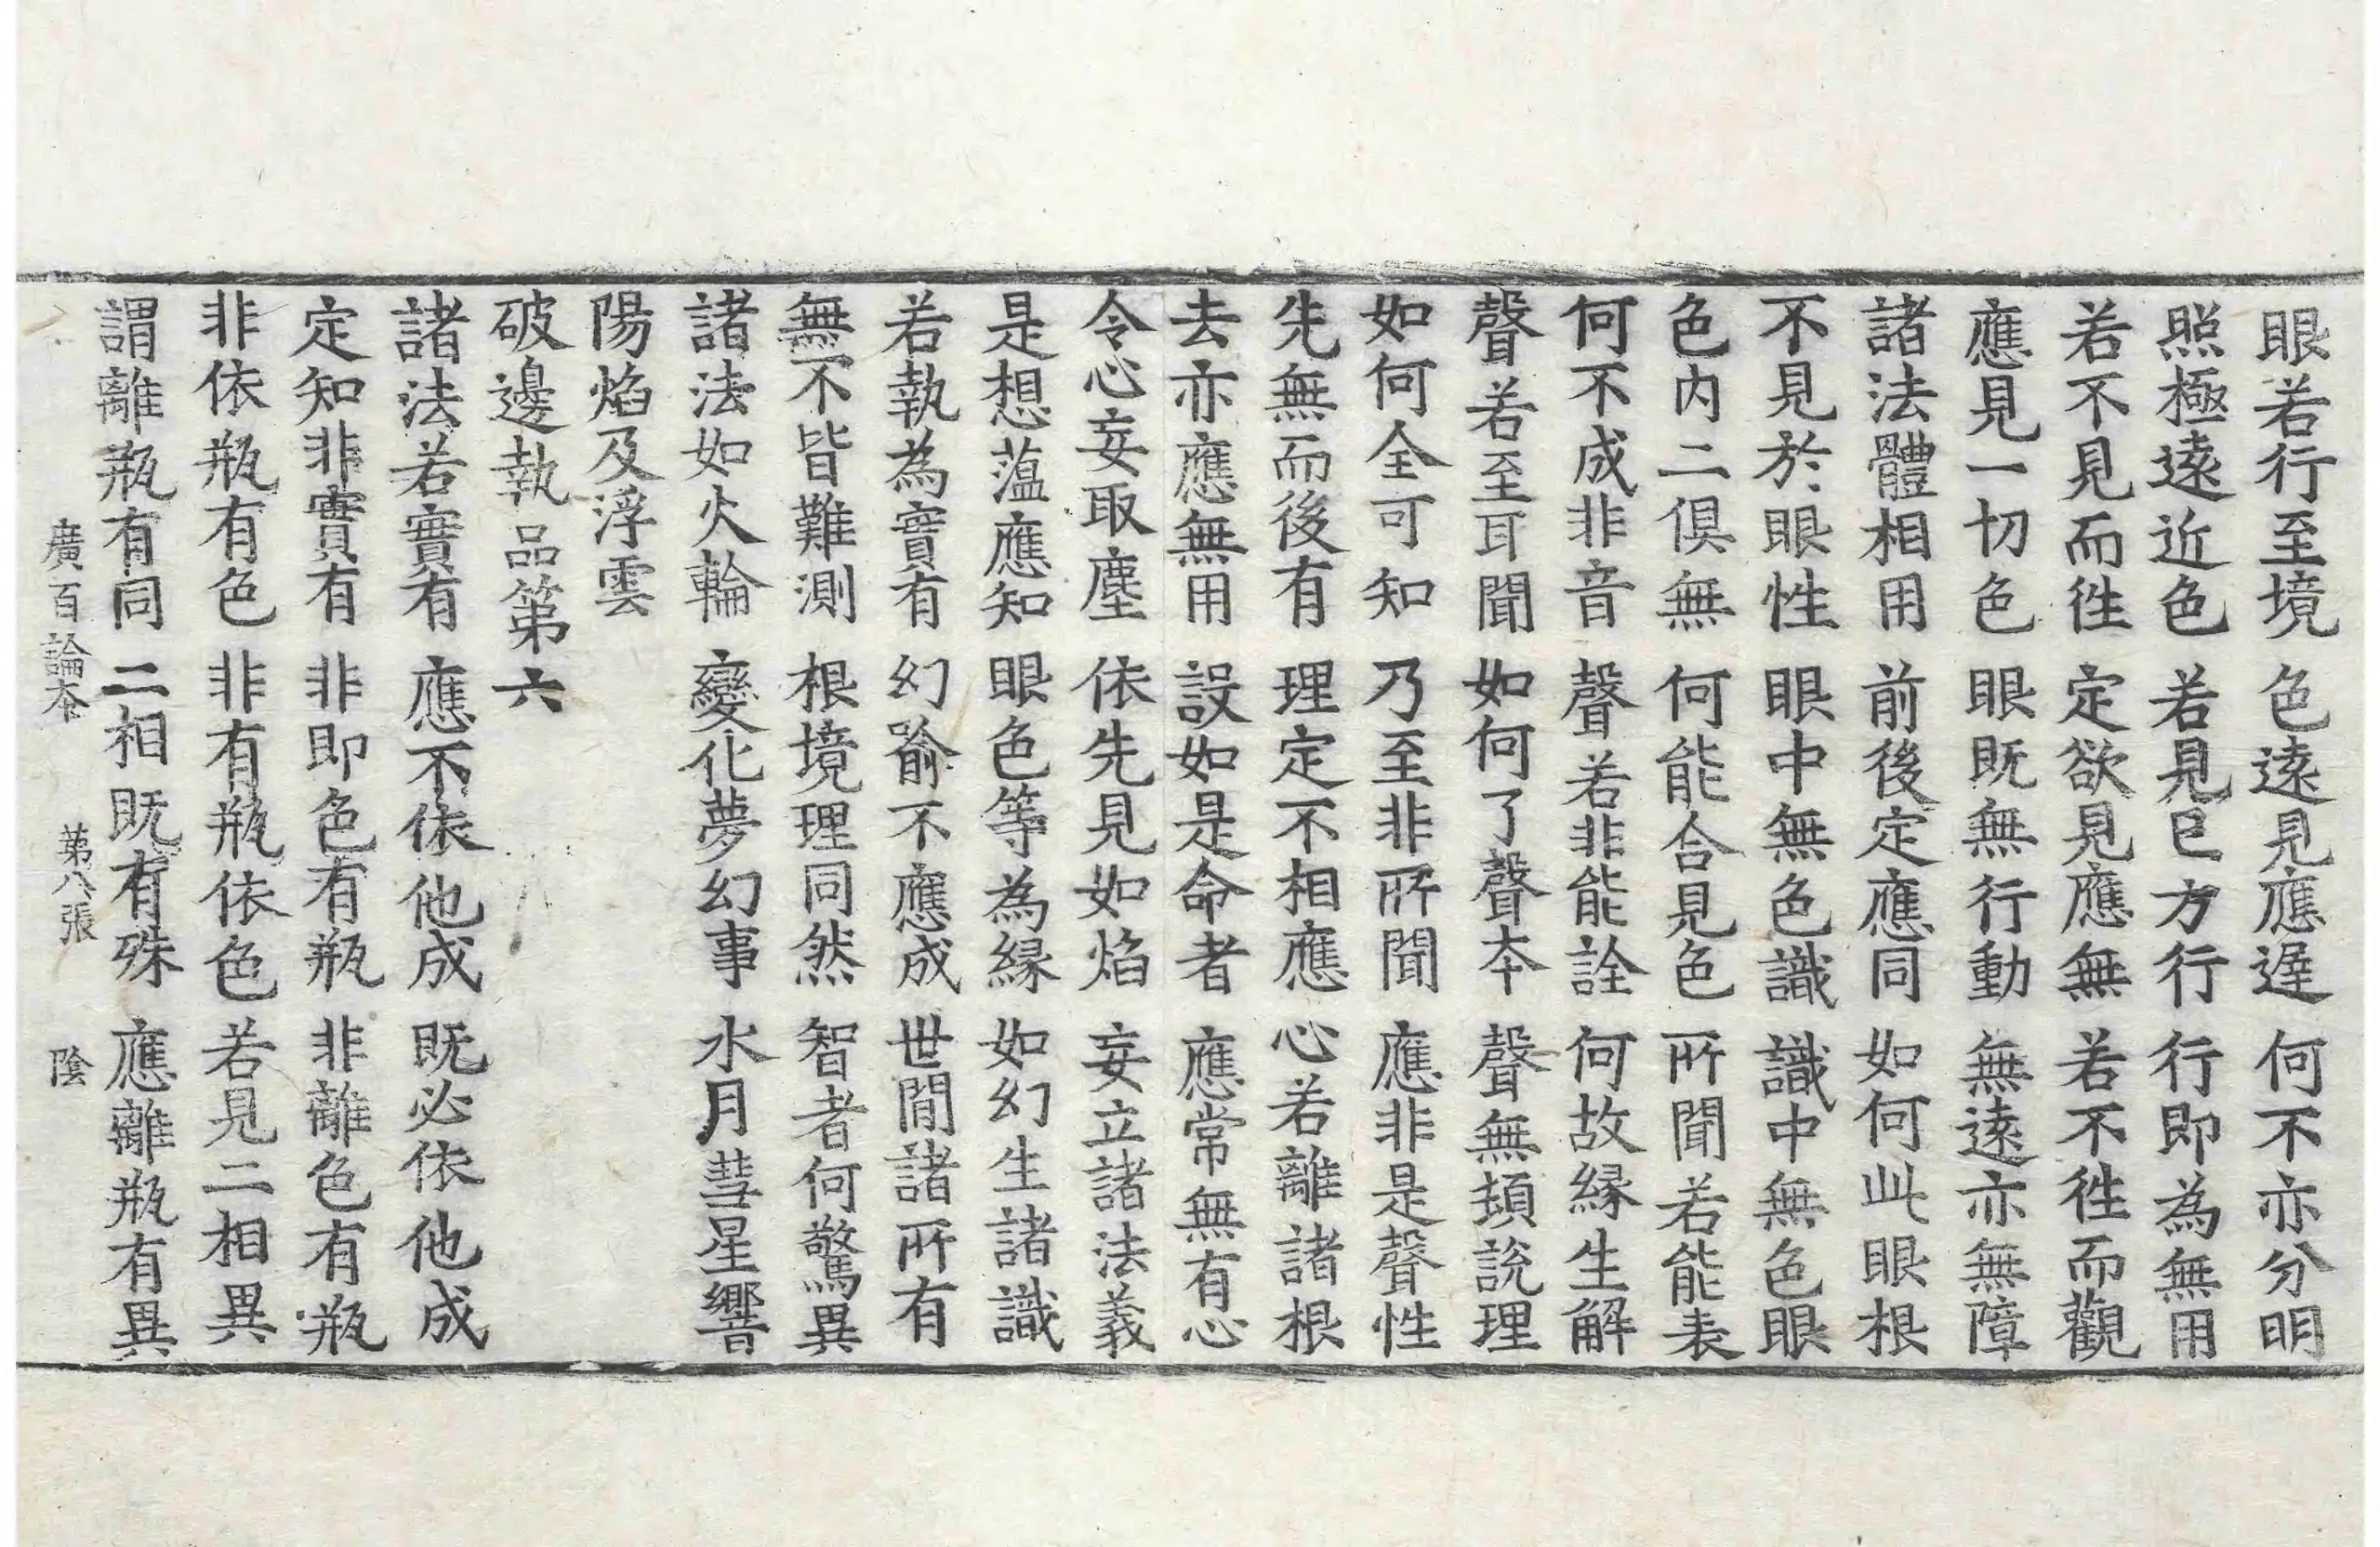 眼若行至境　色遠見應遅　何不亦分明
照極遠近色　若見已方行　行即為無用
若不見而徃　定欲見應無　若不徃而觀
應見一切色　眼既無行動　無遠亦無障
諸法體相用　前後定應同　如何此眼根
不見於眼性　眼中無色識　識中無色眼
色内二俱無　何能合見色　所聞若能表
何不成非音　聲若非能詮　何故緣生解
聲若至耳聞　如何了聲夲　聲無頓說理
如何全可知　乃至非所聞　應非是聲性
先無而後有　理定不相應　心若離諸根
去亦應無用　設如是命者　應常無有心
令心妄取塵　依先見如焰　妄立諸法義
是想薀應知　眼色等為緣　如幻生諸識
若執為實有　幻喻不應成　世閒諸所有
無不皆難測　根境理同然　智者何驚異
諸法如火輪　變化夢幻事　水月彗星響
陽焰及浮雲
破邊執品第六
諸法若實有　應不依他成　既必依他成
定知非實有　非即色有瓶　非離色有瓶
非依瓶有色　非有瓶依色　若見二相異
謂離瓶有同　二相既有殊　應離瓶有異
廣百論夲　第八張　陰